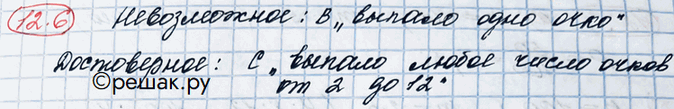 12.6 Невозможное: В „выпало одно очко"
Достоверное: С „выпало любое число очков
от 2 до 12"
©решак.ру